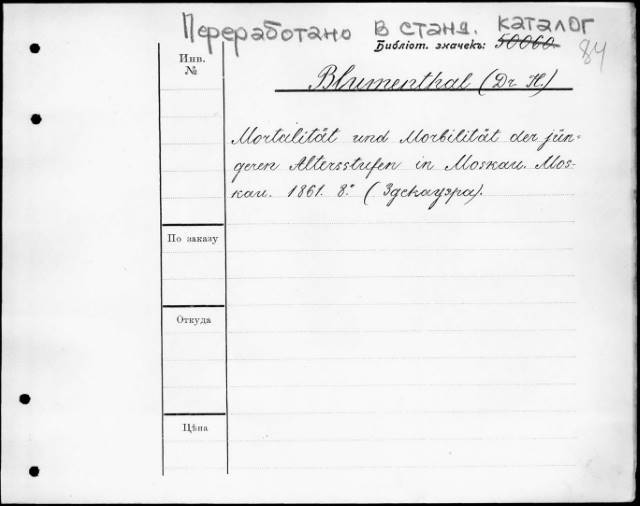 Переработано в станд. каталог
Библіот. значекъ: 50060.
84
Инв.
№
Blumenthal (Dr H.)
Mortalität und Morbilität der jün-
geren Altersstufen in Moskau. Mos-
kau. 1861. 8.° (Здекауэра).
По заказу
Откуда
Цѣна